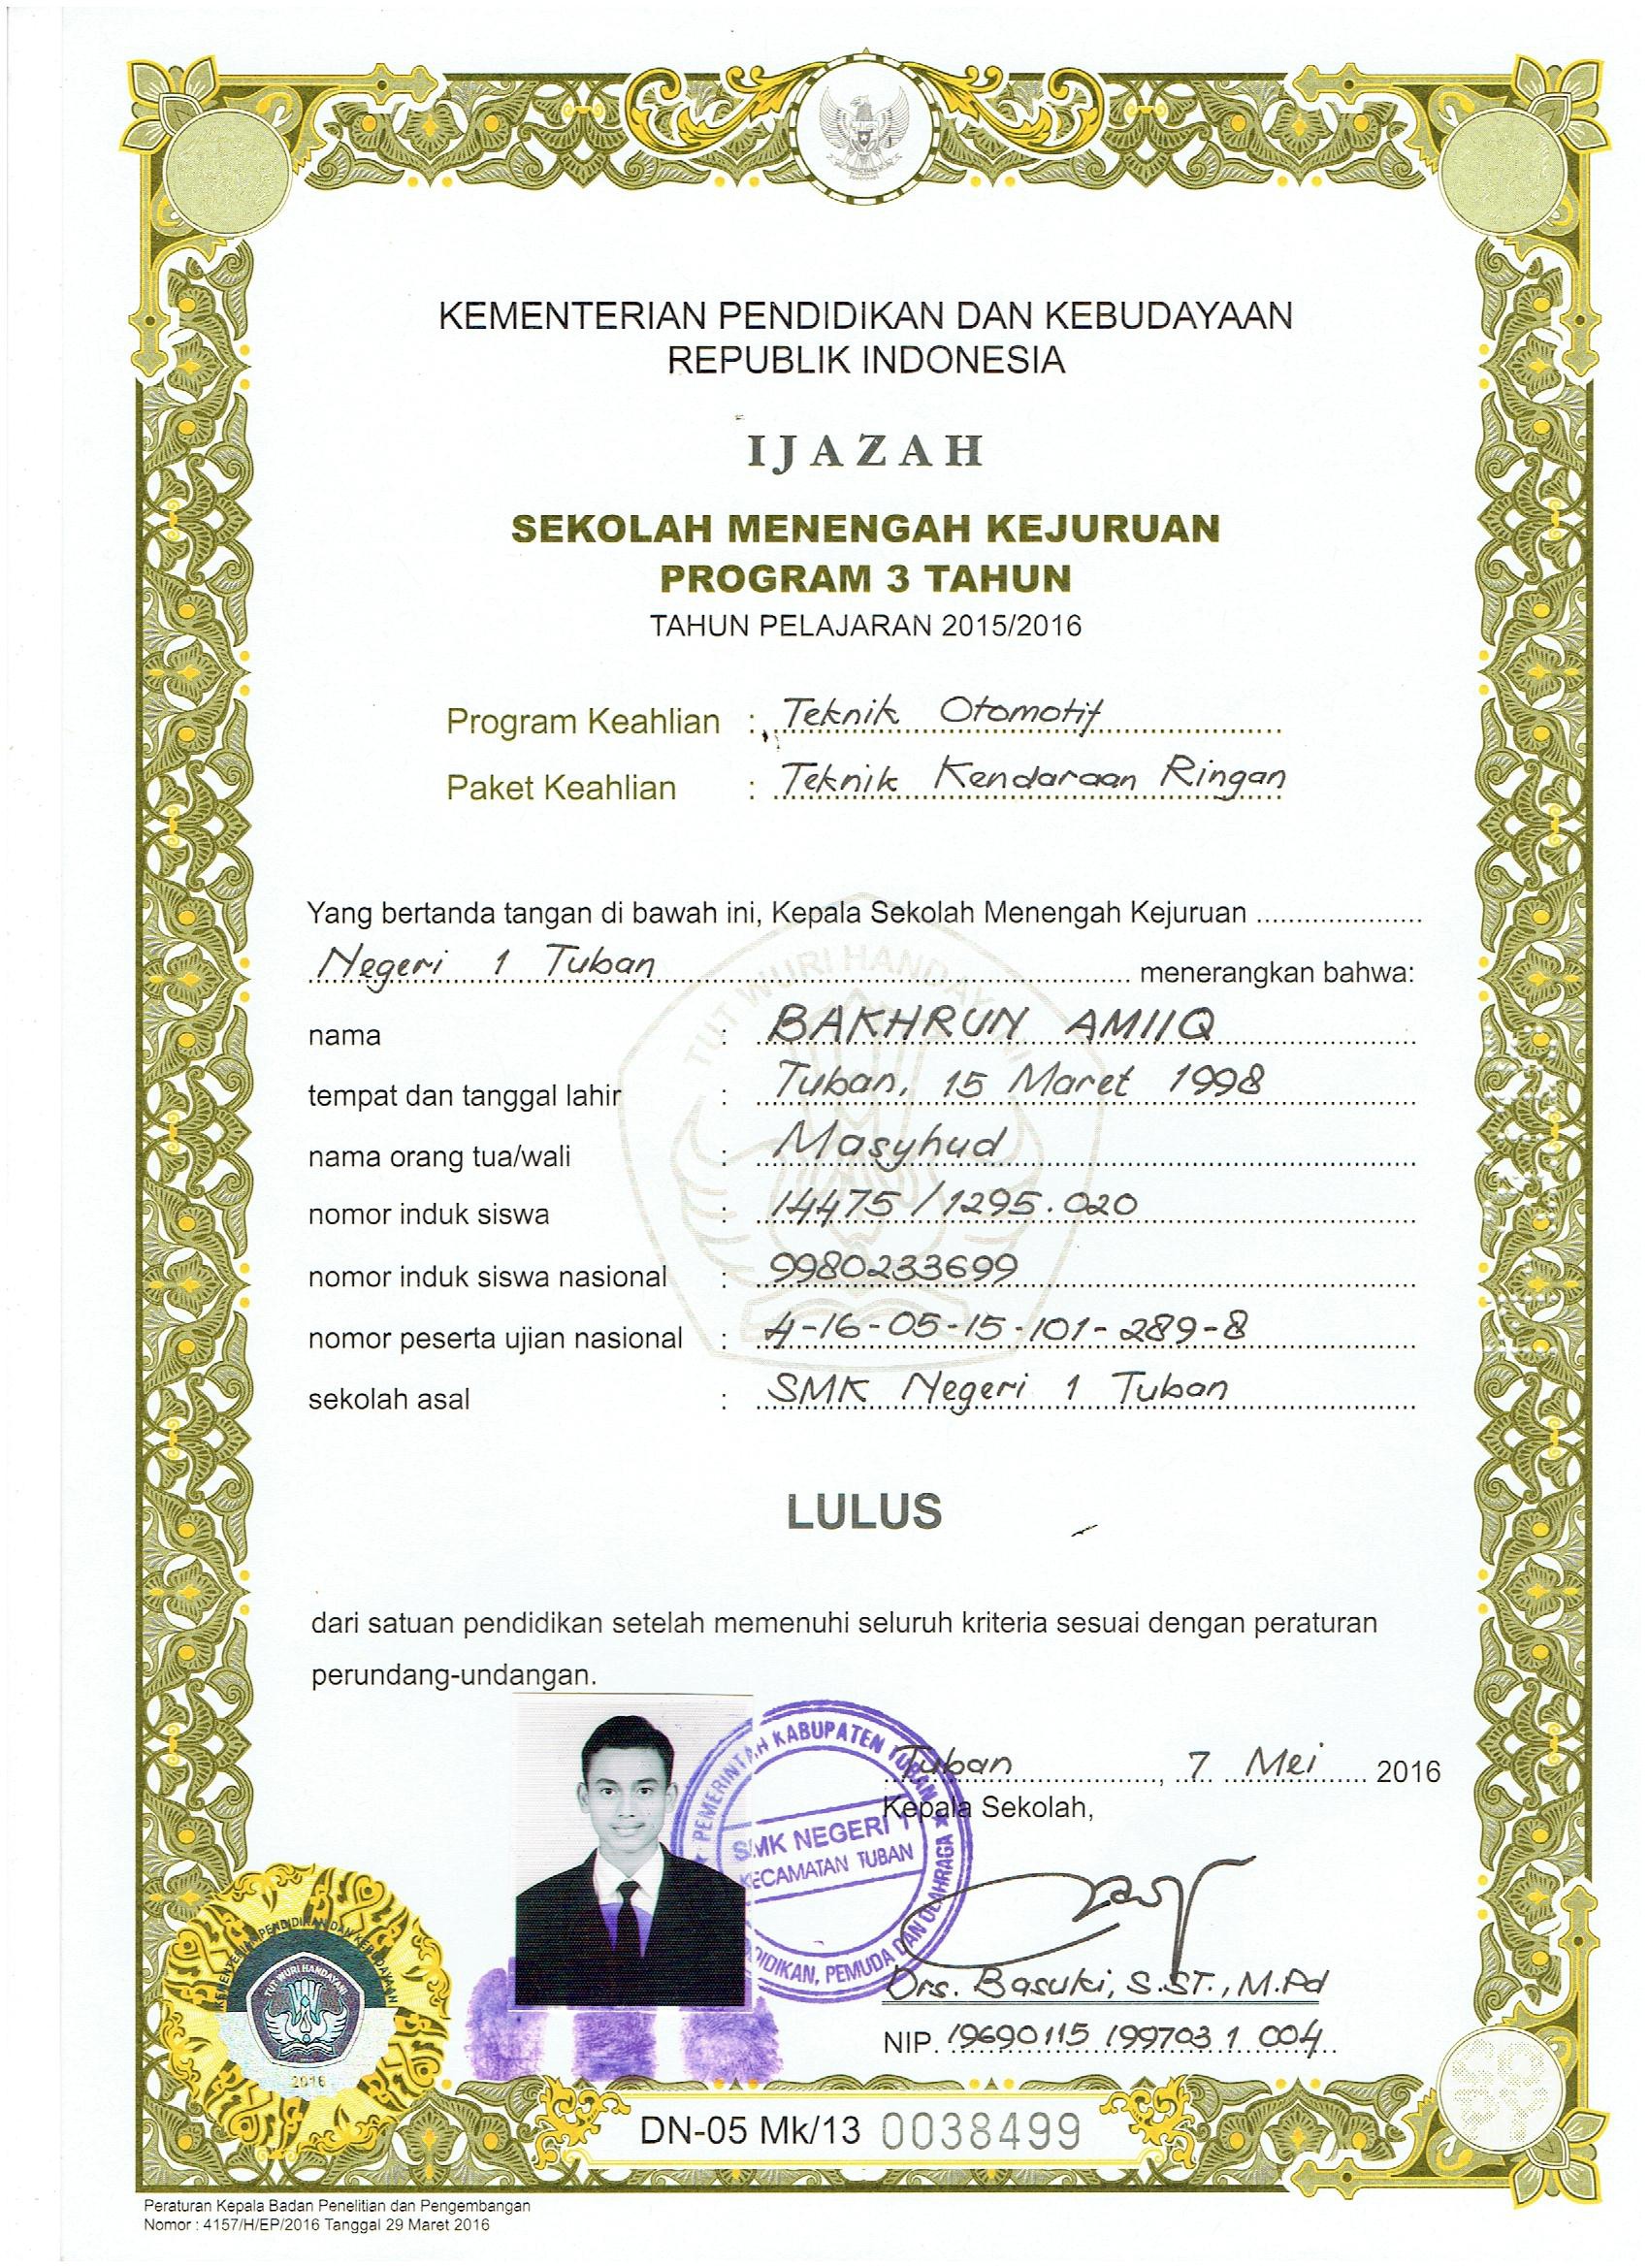 KEMENTERIAN PENDIDIKAN DAN KEBUDAYAAN
REPUBLIK INDONESIA
IJAZAH
SEKOLAH MENENGAH KEJURUAN
PROGRAM 3 TAHUN
TAHUN PELAJARAN 2015/2016
Program Keahlian : Teknik Otomotif
Paket Keahlian : Teknik Kendaraan Ringan
Yang bertanda tangan di bawah ini, Kepala Sekolah Menengah Kejuruan
Negeri 1 Tuban menerangkan bahwa:
TUT WURI HANDAYANI
nama : BAKHRUN AMIIQ
tempat dan tanggal lahir : Tuban, 15 Maret 1998
nama orang tua/wali : Masyhud
nomor induk siswa : 14475/1295.020
nomor induk siswa nasional : 9980233699
nomor peserta ujian nasional : 4-16-05-15-101-289-8
sekolah asal : SMK Negeri 1 Tuban
LULUS
dari satuan pendidikan setelah memenuhi seluruh kriteria sesuai dengan peraturan
perundang-undangan.
PEMERINTAH KABUPATEN TUBAN
SMK NEGERI 1
KECAMATAN TUBAN
PEMUDA DAN OLAHRAGA
Tuban, 7 Mei 2016
Kepala Sekolah,
Drs. Basuki, S.ST., M.Pd
NIP. 19690115 199703 1 004
KEMENTERIAN PENDIDIKAN DAN KEBUDAYAAN
TUT WURI HANDAYANI
2016
DN-05 Mk/13 0038499
Peraturan Kepala Badan Penelitian dan Pengembangan
Nomor : 4157/H/EP/2016 Tanggal 29 Maret 2016